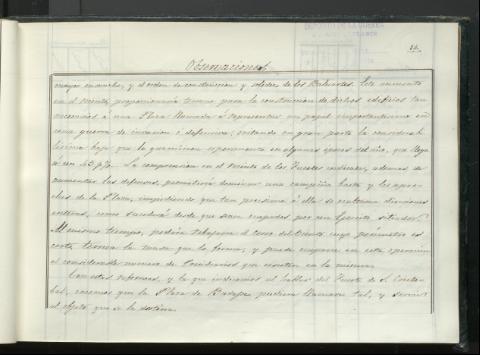 34.
Observaciones.
mayor ensanche, y el orden de construccion y de los Baluartes. Este aumento
en el recinto, proporcionaria terreno para la construccion de dichos edificios tan
necesarios á una Plaza llamada á representar un papel importantisimo en
una guerra de invasion ó defensiva; evitando en gran parte la considerabi-
lisima baja que la guarnicion esperimenta en algunas épocas del año, que llega
á un 45 p%. La comprension en el recinto de los Fuertes indicados, ademas de
aumentar las defensas, permitiria dominar una campiña basta y los apro-
ches de la Plaza, impidiendo que tan proximo á ella se
como sucederá desde que sean ocupados por un Egercito sitiador.
Al mismo tiempo, podria rebajarse el cerro del Viento cuyo perimetro es
corto termina la que lo forma, y puede emplearse en esta operacion
el considerable numero de Presidarios que existen en la misma.
Con estas reformas, y la que indicamos al hablar del Fuerte de S. Cristo-
bal, creemos que la Plaza de Badajoz pudiera llamarse tal, y servir
al objeto que se la destina.